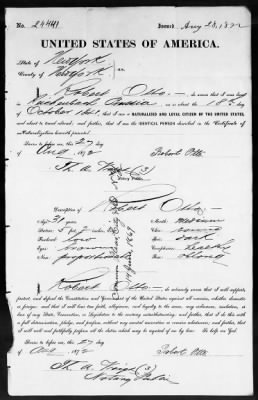 No. 24441 Issued Aug 28, 1872
UNITED STATES OF AMERICA.
State of New York
County of New York ss:
I, Robert Otto, do swear that I was born
in Prussia, on or about the 18th day of
October 1841; that I am a NATURALIZED AND LOYAL CITIZEN OF THE UNITED STATES
and about to travel abroad; and further, that I am the IDENTICAL PERSON described in the Certificate of
Naturalization herewith presented.
Sworn to before me, this 27 day
of Aug 1872 Robert Otto
Notary Public.
Description of Robert Otto
Age: 31 years Mouth: medium
Stature: 5 feet 2 inches
Forehead: low
Eyes: brown
Nose: proportionate
I, Robert Otto, do solemnly swear that I will support,
protect, and defend the Constitution and Government of the United States against all enemies, whether domestic
or foreign; and that I will bear true faith, allegiance, and loyalty to the same, any ordinance, resolution, or
law of any State, Convention, or Legislature to the contrary notwithstanding; and further, that I do this with
a full determination, pledge, and purpose, without any mental reservation or evasion whatsoever; and further, that
I will well and faithfully perform all the duties which may be required of me by law. So help me God.
Sworn to before me, this 27 day
of Aug 1872 Robert Otto
Notary Public